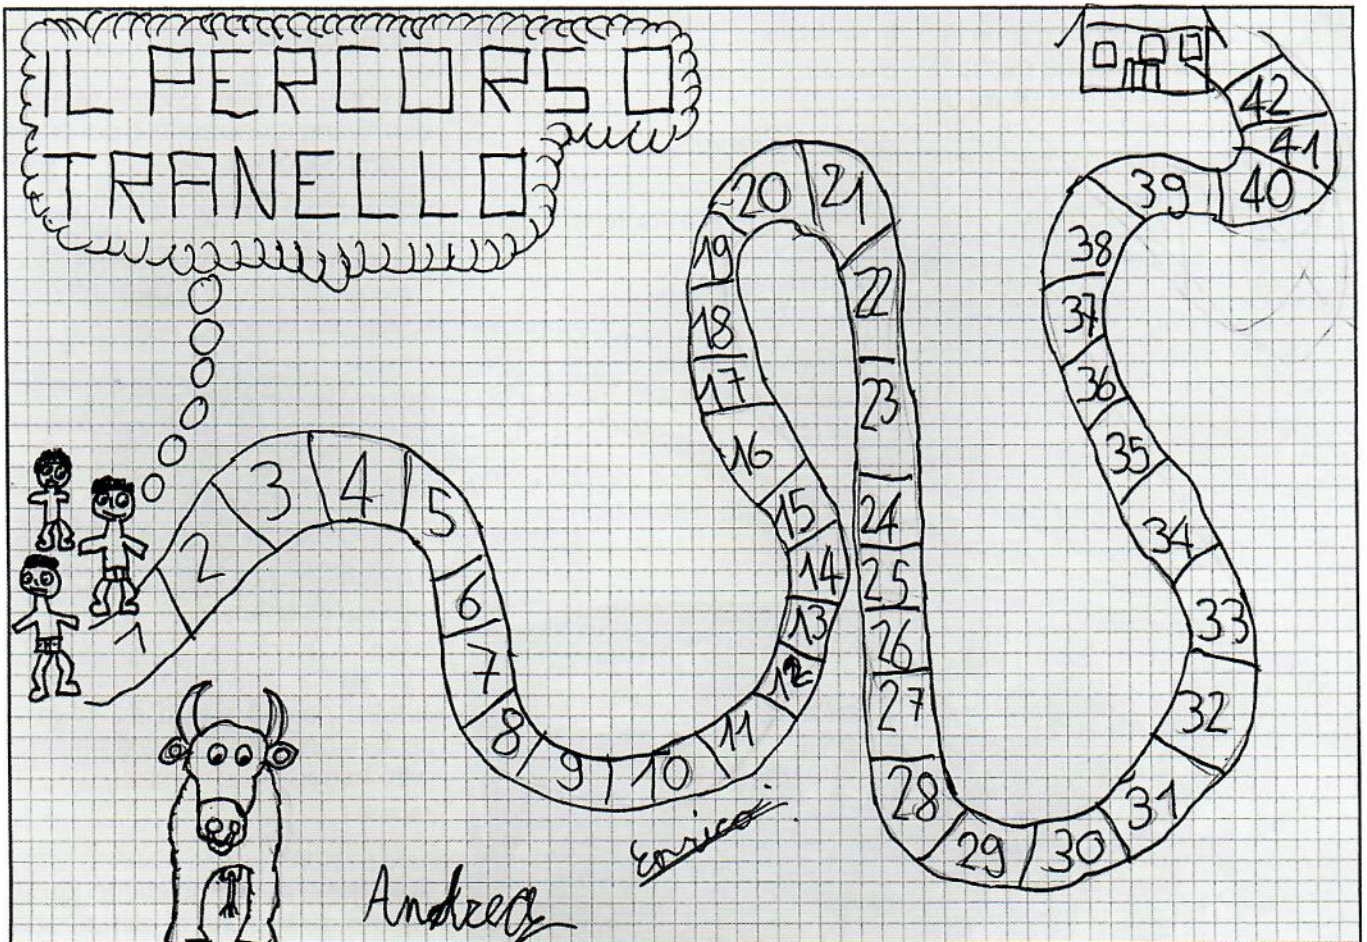 IL PERCORSO
TRANELLO
1
2
3
4
5
6
7
8
9
10
11
12
13
14
15
16
17
18
19
20
21
22
23
24
25
26
27
28
29
30
31
32
33
34
35
36
37
38
39
40
41
42
Enrico
Andrea